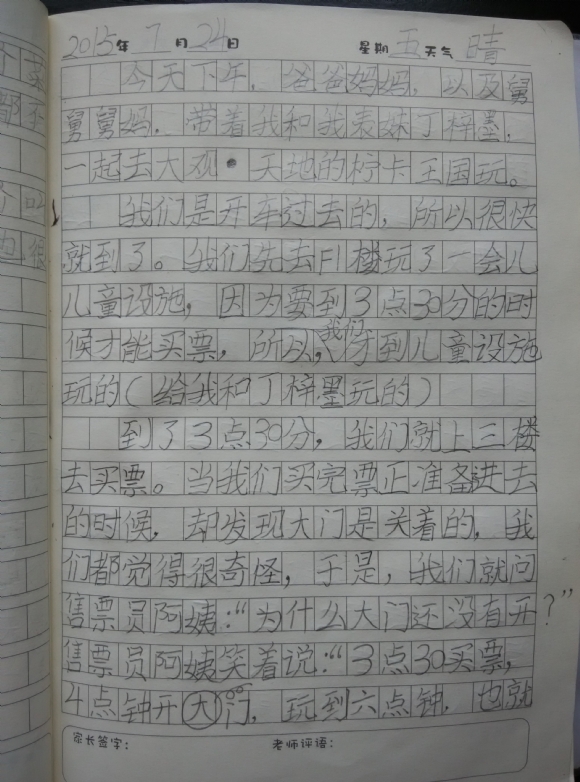 2015年7月24日 星期五天气晴
今天下午,爸爸妈妈,以及舅
舅舅妈.带着我和我表妹丁梓墨.
一起去大观·天地的柠卡王国玩。
我们是开车过去的,所以很快
就到了。我们先去F1楼玩了一会儿
儿童设施,因为要到3点30分的时
候才能买票,所以,我们才到儿童设施
玩的(给我和丁梓墨玩的)
到了3点30分,我们就上三楼
去买票。当我们买完票正准备进去
的时候,却发现大门是关着的,我
们都觉得很奇怪,于是,我们就问
售票员阿姨:“为什么大门还没有开?”
售票员阿姨笑着说:“3点30买票,
4点钟开大门,玩到六点钟.也就
家长签字: 老师评语: